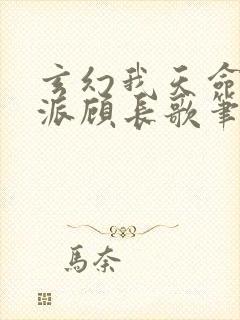 玄幻我天命
派顾长歌笔
馬奈